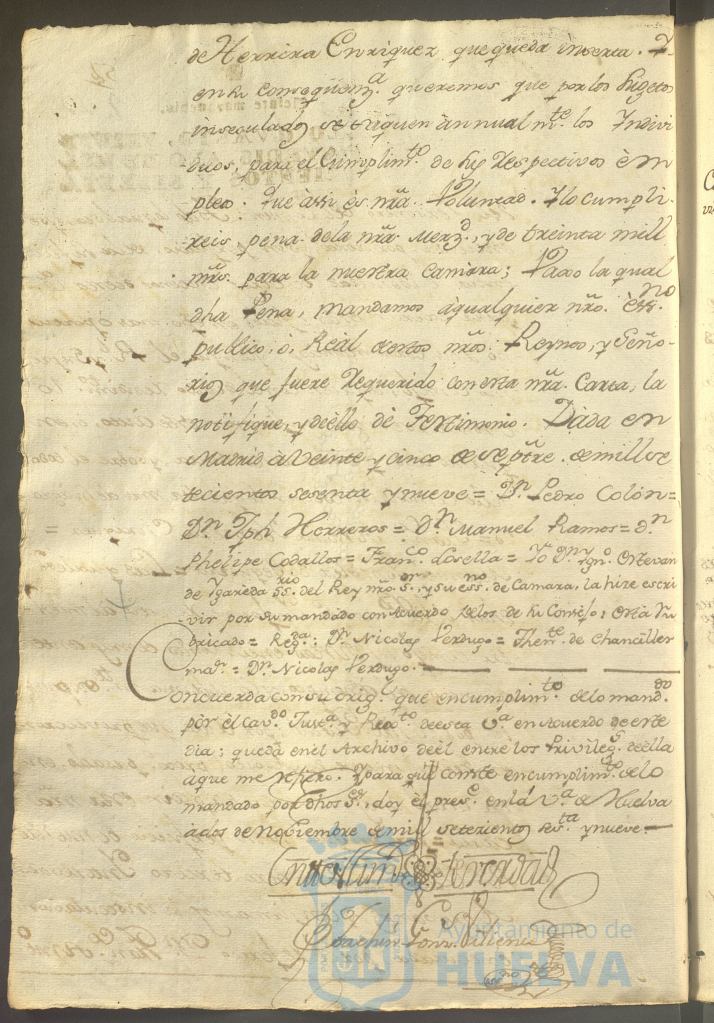 de Herrera Enriquez que queda inserta. Y
en su consequenz.a queremos que por los Sugetos
insculados se saquen annualm.te los Indivi
duos, para el Cumplim.to de sus respectivos èm
pleos. Que assi és nrâ. Voluntad. Y lo cumpli-
reis, pena dela nrâ. Merz.d, y de treinta mill
mrs. para la nuestra Camara; Vaxo la qual
dha Pena, mandamos à qualquier nrô. ess.no
publico, o, Real destos nrôs. Reynos, y Seño-
rios que fuere requerido con esta nrâ. Carta, la
notifique, y de ello dè Testimonio. Dada en
Madrid à Veinte y cinco de Septre. de mill se
tecientos sesenta y nueve = D.n Pedro Colón =
D.n Jph Herreros = D.n Manuel Ramos = D.n
Phelipe Codallos = Fran.co Losella = Yo D.n Ygn.o Estevan
de Ygareda ss.rio del Rey nrô. s.or y su ess.no de Camara, la hize escri
vir por su mandado con Acuerdo de los de su Consejo; Està Ru
bricado = Reg.da: D.n Nicolas Verdugo = Then.te de Chanciller
ma.or = D.n Nicolas Verdugo.
Concuerda con su orig.l que en cumplim.to de lo mand.do
por el Cav.do Just.a y Rex.to de esta V.a en Acuerdo de este
dia; queda en el Archivo de èl entre los Privileg.s de ella
a que me refiero. Y para que conste en cumplim.to de lo
mandado por dhos S.res doy el pres.te en la V.a de Huelva
a dos de Noviembre de mill setecientos ses.ta y nueve
Joachin Gonz. Villencia
Ayuntamiento de
HUELVA